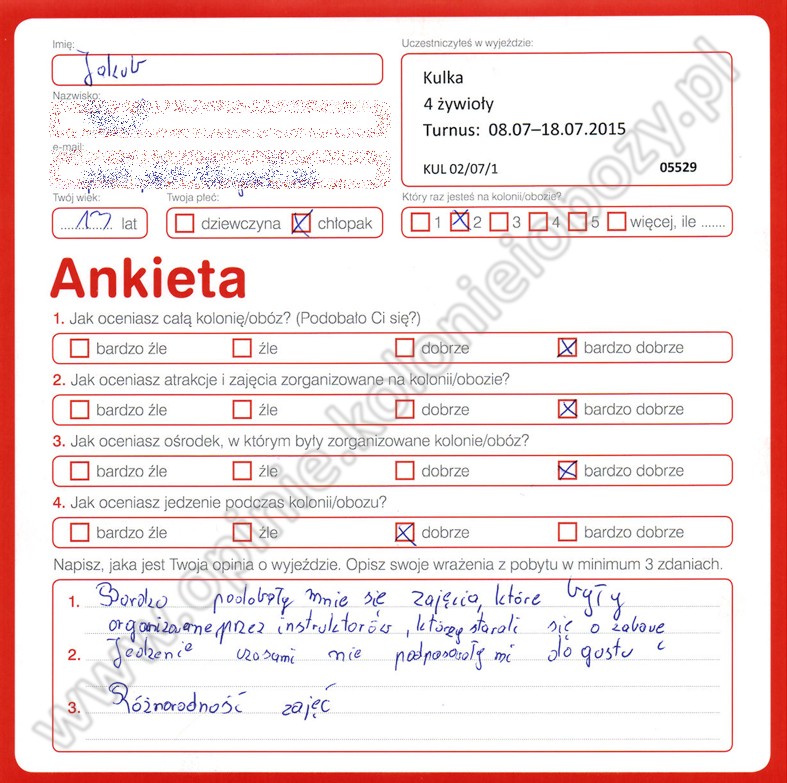 Imię:
Jakub
Uczestniczyłeś w wyjeździe:
Kulka
4 żywioły
Turnus: 08.07–18.07.2015
KUL 02/07/1 05529
Nazwisko:
e-mail:
Twój wiek:
lat
Twoja płeć:
dziewczyna chłopak
Który raz jesteś na kolonii/obozie?
1 2 3 4 5 więcej, ile .......
Ankieta
1. Jak oceniasz całą kolonię/obóz? (Podobało Ci się?)
bardzo źle źle dobrze bardzo dobrze
2. Jak oceniasz atrakcje i zajęcia zorganizowane na kolonii/obozie?
bardzo źle źle dobrze bardzo dobrze
3. Jak oceniasz ośrodek, w którym były zorganizowane kolonie/obóz?
bardzo źle źle dobrze bardzo dobrze
4. Jak oceniasz jedzenie podczas kolonii/obozu?
bardzo źle źle dobrze bardzo dobrze
Napisz, jaka jest Twoja opinia o wyjeździe. Opisz swoje wrażenia z pobytu w minimum 3 zdaniach.
1. Bardzo podobały mnie się zajęcia, które były
organizowane przez instruktorów, którzy starali się o zabawę
2. Jedzenie czasami nie mi do gustu
3. Różnorodność zajęć
www.opinie.kolonieiobozy.pl